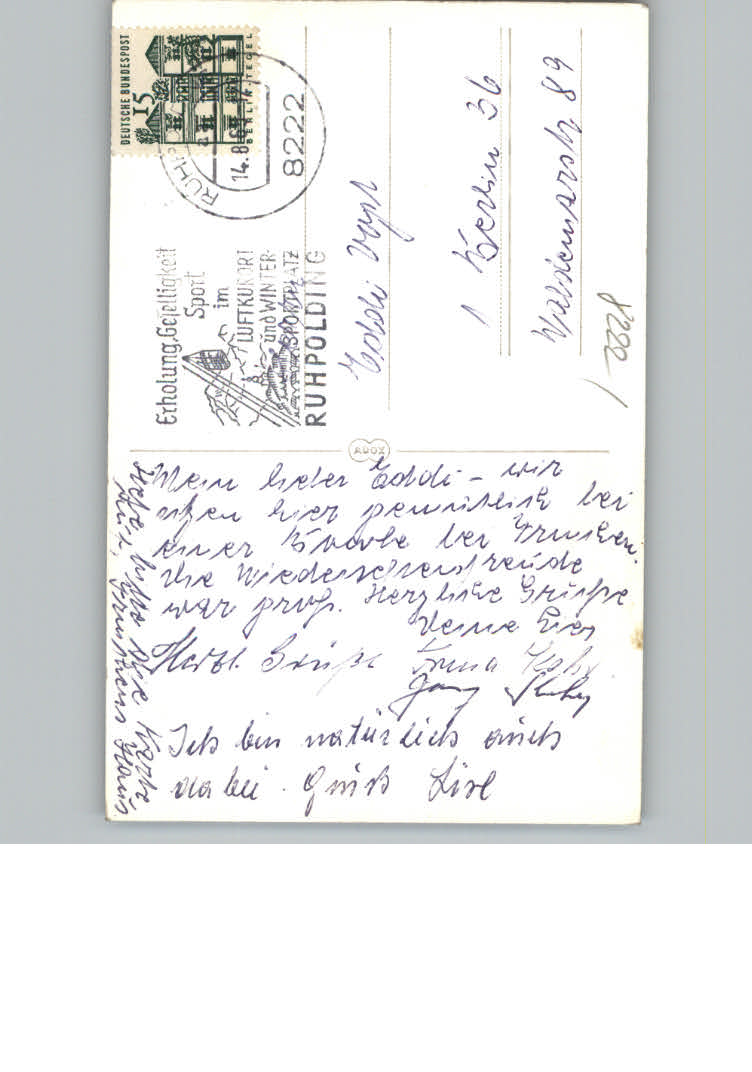 DEUTSCHE BUNDESPOST
15
BERLIN TEGEL
RUHP
14.8.
8222
Erholung, Geselligkeit
Sport
im
LUFTKURORT
und WINTER-
SPORTPLATZ
RUHPOLDING
Eddi
1 Berlin 36
Waldemarstr 89
8222
ADOX
Mein lieber Eddi – wir
sitzen hier gemütlich bei
einer Bowle bei
Die Wiedersehensfreude
war groß. Herzliche Grüße
Deine
Herzl. Grüße
Ich bin natürlich auch
dabei. Gruß Lisl
Hebe bitte die Karte
auf,
Haus